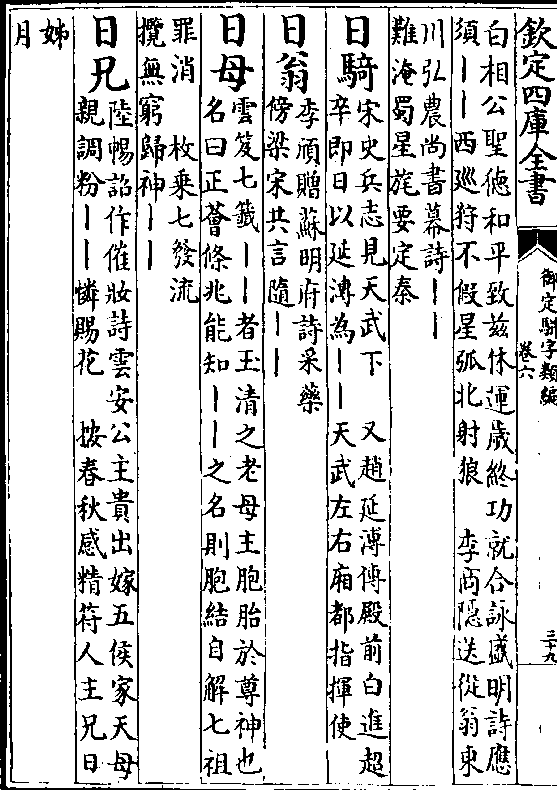 欽定四庫全書
御定駢字類編
卷六
三十九
白相公聖德和平致兹休運歲終功就合詠盛明詩應
須丨丨西巡狩不假星弧北射狼　李商隱送從翁東
川弘農尚書幕詩丨丨
難淹蜀星旄要定秦
日騎
宋史兵志見天武下　又趙延溥傳殿前白進超
卒即日以延溥為丨丨天武左右廂都指揮使
日翁
李頎贈蘇明府詩采藥
傍梁宋共言隨丨丨
日母
雲笈七籤丨丨者玉清之老母主胞胎於尊神也
名曰正薈條兆能知丨丨之名則胞結自解七祖
罪消　枚乘七發流
攬無窮歸神丨丨
日兄
陸暢詔作催妝詩雲安公主貴出嫁五侯家天母
親調粉丨丨憐賜花　按春秋感精符人主兄日
姊
月